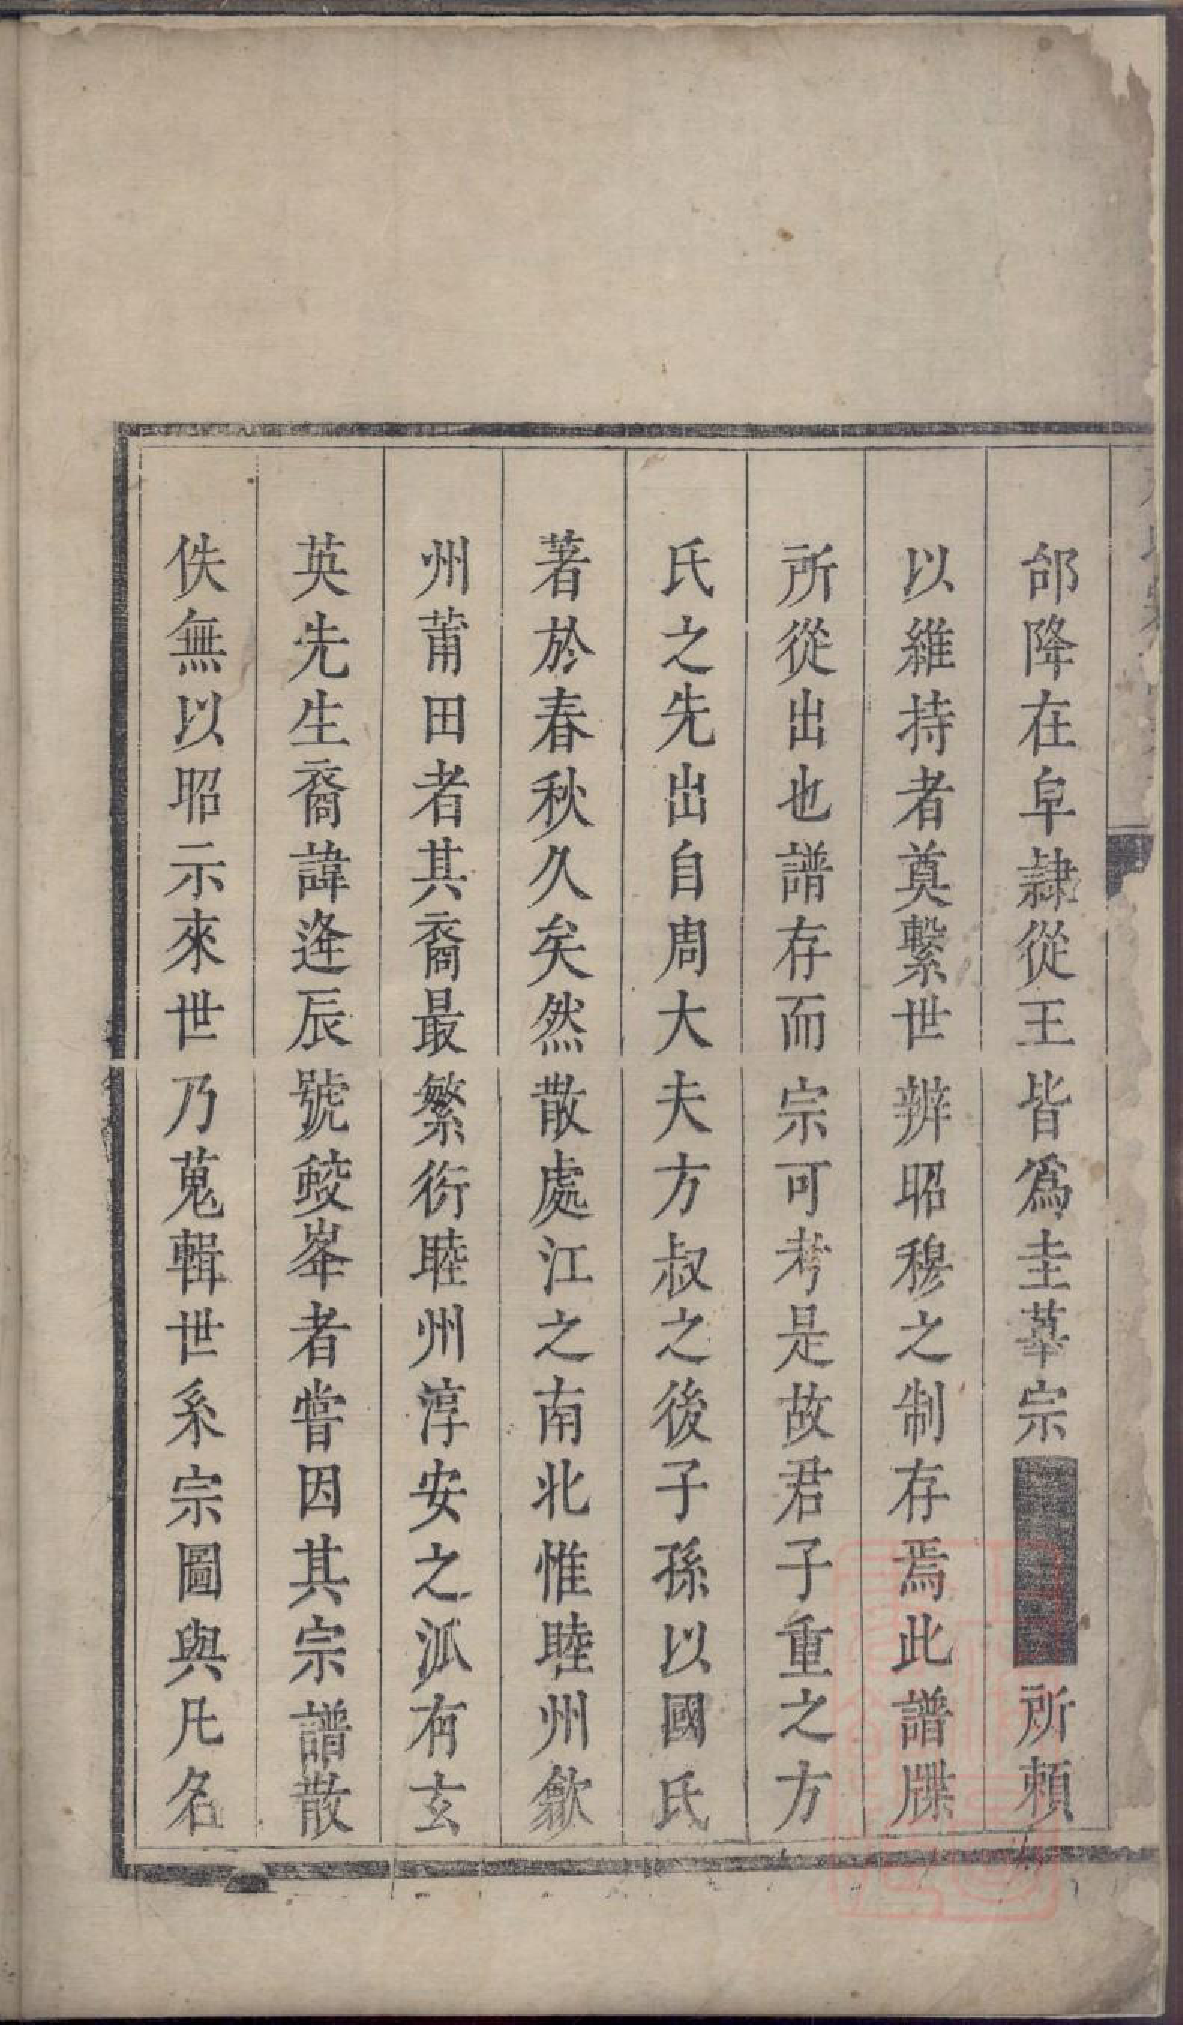 郃降在皁隷從王皆爲圭蓽宗所頼
以維持者奠繫世辨昭穆之制存焉此譜牒
所從出也譜存而宗可考是故君子重之方
氏之先出自周大夫方叔之後子孫以國氏
著於春秋久矣然散處江之南北惟睦州歙
州莆田者其裔最繁衍睦州淳安之派有玄
英先生裔諱逄辰號蛟峯者嘗因其宗譜散
佚無以昭示來世乃蒐輯世系宗圖與凡名